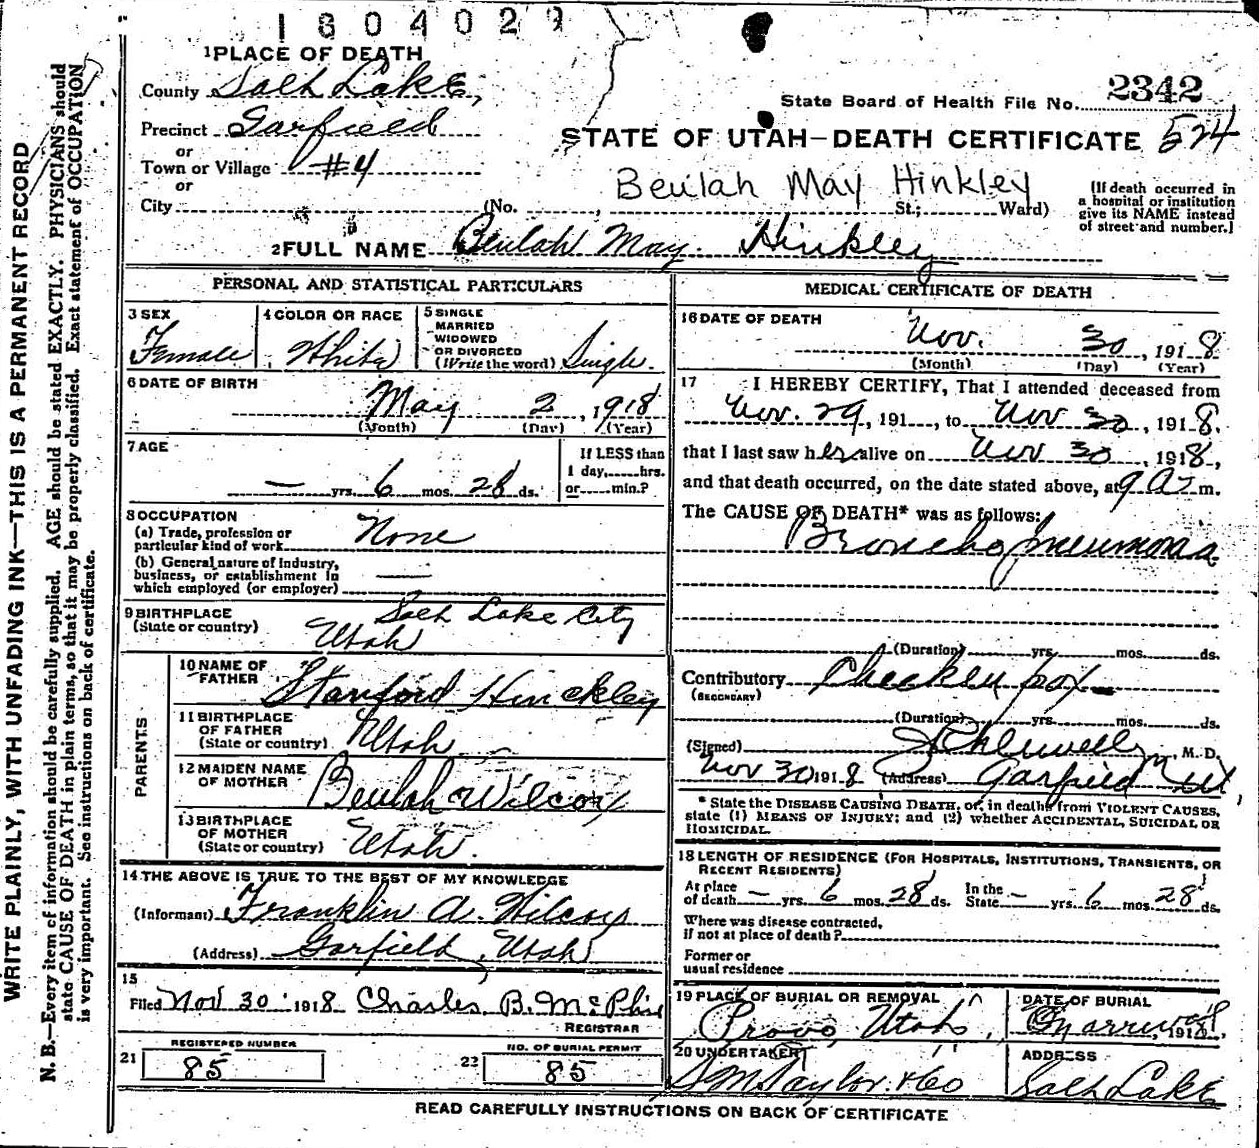 1804029
1 PLACE OF DEATH
County Salt Lake,
State Board of Health File No. 2342
Precinct Garfield
STATE OF UTAH—DEATH CERTIFICATE 524
or
Town or Village #4
or
Beulah May Hinkley
City (No. , St.; Ward)
[If death occurred in
a hospital or institution
give its NAME instead
of street and number.]
2 FULL NAME Beulah May Hinkley
PERSONAL AND STATISTICAL PARTICULARS
3 SEX
Female
4 COLOR OR RACE
White
5 SINGLE
MARRIED
WIDOWED
OR DIVORCED
(Write the word) Single.
6 DATE OF BIRTH
May 2, 1918
(Month) (Day) (Year)
7 AGE
— yrs. 6 mos. 28 ds.
If LESS than
1 day, hrs.
or min.?
8 OCCUPATION
(a) Trade, profession or
particular kind of work None
(b) General nature of Industry,
business, or establishment in
which employed (or employer) —
9 BIRTHPLACE
(State or country)
Salt Lake City
Utah
PARENTS
10 NAME OF
FATHER Stanford Hinckley
11 BIRTHPLACE
OF FATHER
(State or country) Utah
12 MAIDEN NAME
OF MOTHER Beulah Wilcox
13 BIRTHPLACE
OF MOTHER
(State or country) Utah.
14 THE ABOVE IS TRUE TO THE BEST OF MY KNOWLEDGE
(Informant) Franklin A. Wilcox
(Address) Garfield, Utah
15
Filed Nov 30 1918 Charles B. McPhie
REGISTRAR
21 REGISTERED NUMBER
85
22 NO. OF BURIAL PERMIT
85
MEDICAL CERTIFICATE OF DEATH
16 DATE OF DEATH
Nov. 30, 1918
(Month) (Day) (Year)
17 I HEREBY CERTIFY, That I attended deceased from
Nov. 29, 191 , to Nov 30, 1918,
that I last saw her alive on Nov 30, 1918,
and that death occurred, on the date stated above, at 9 a. m.
The CAUSE OF DEATH* was as follows:
Broncho pneumonia
(Duration) yrs. mos. ds.
Contributory Chicken pox
(SECONDARY)
(Duration) yrs. mos. ds.
(Signed) M.D.
Nov 30 1918 (Address) Garfield Ut,
* State the DISEASE CAUSING DEATH, or, in deaths from VIOLENT CAUSES,
state (1) MEANS OF INJURY; and (2) whether ACCIDENTAL, SUICIDAL OR
HOMICIDAL.
18 LENGTH OF RESIDENCE (FOR HOSPITALS, INSTITUTIONS, TRANSIENTS, OR
RECENT RESIDENTS)
At place
of death — yrs. 6 mos. 28 ds.
In the
State — yrs. 6 mos. 28 ds.
Where was disease contracted,
if not at place of death?
Former or
usual residence
19 PLACE OF BURIAL OR REMOVAL
Provo, Utah,
DATE OF BURIAL
1918
20 UNDERTAKER
S M Taylor & Co
ADDRESS
Salt Lake
READ CAREFULLY INSTRUCTIONS ON BACK OF CERTIFICATE
WRITE PLAINLY, WITH UNFADING INK—THIS IS A PERMANENT RECORD
N. B.—Every item of information should be carefully supplied. AGE should be stated EXACTLY. PHYSICIANS should
state CAUSE OF DEATH in plain terms, so that it may be properly classified. Exact statement of OCCUPATION
is very important. See instructions on back of certificate.